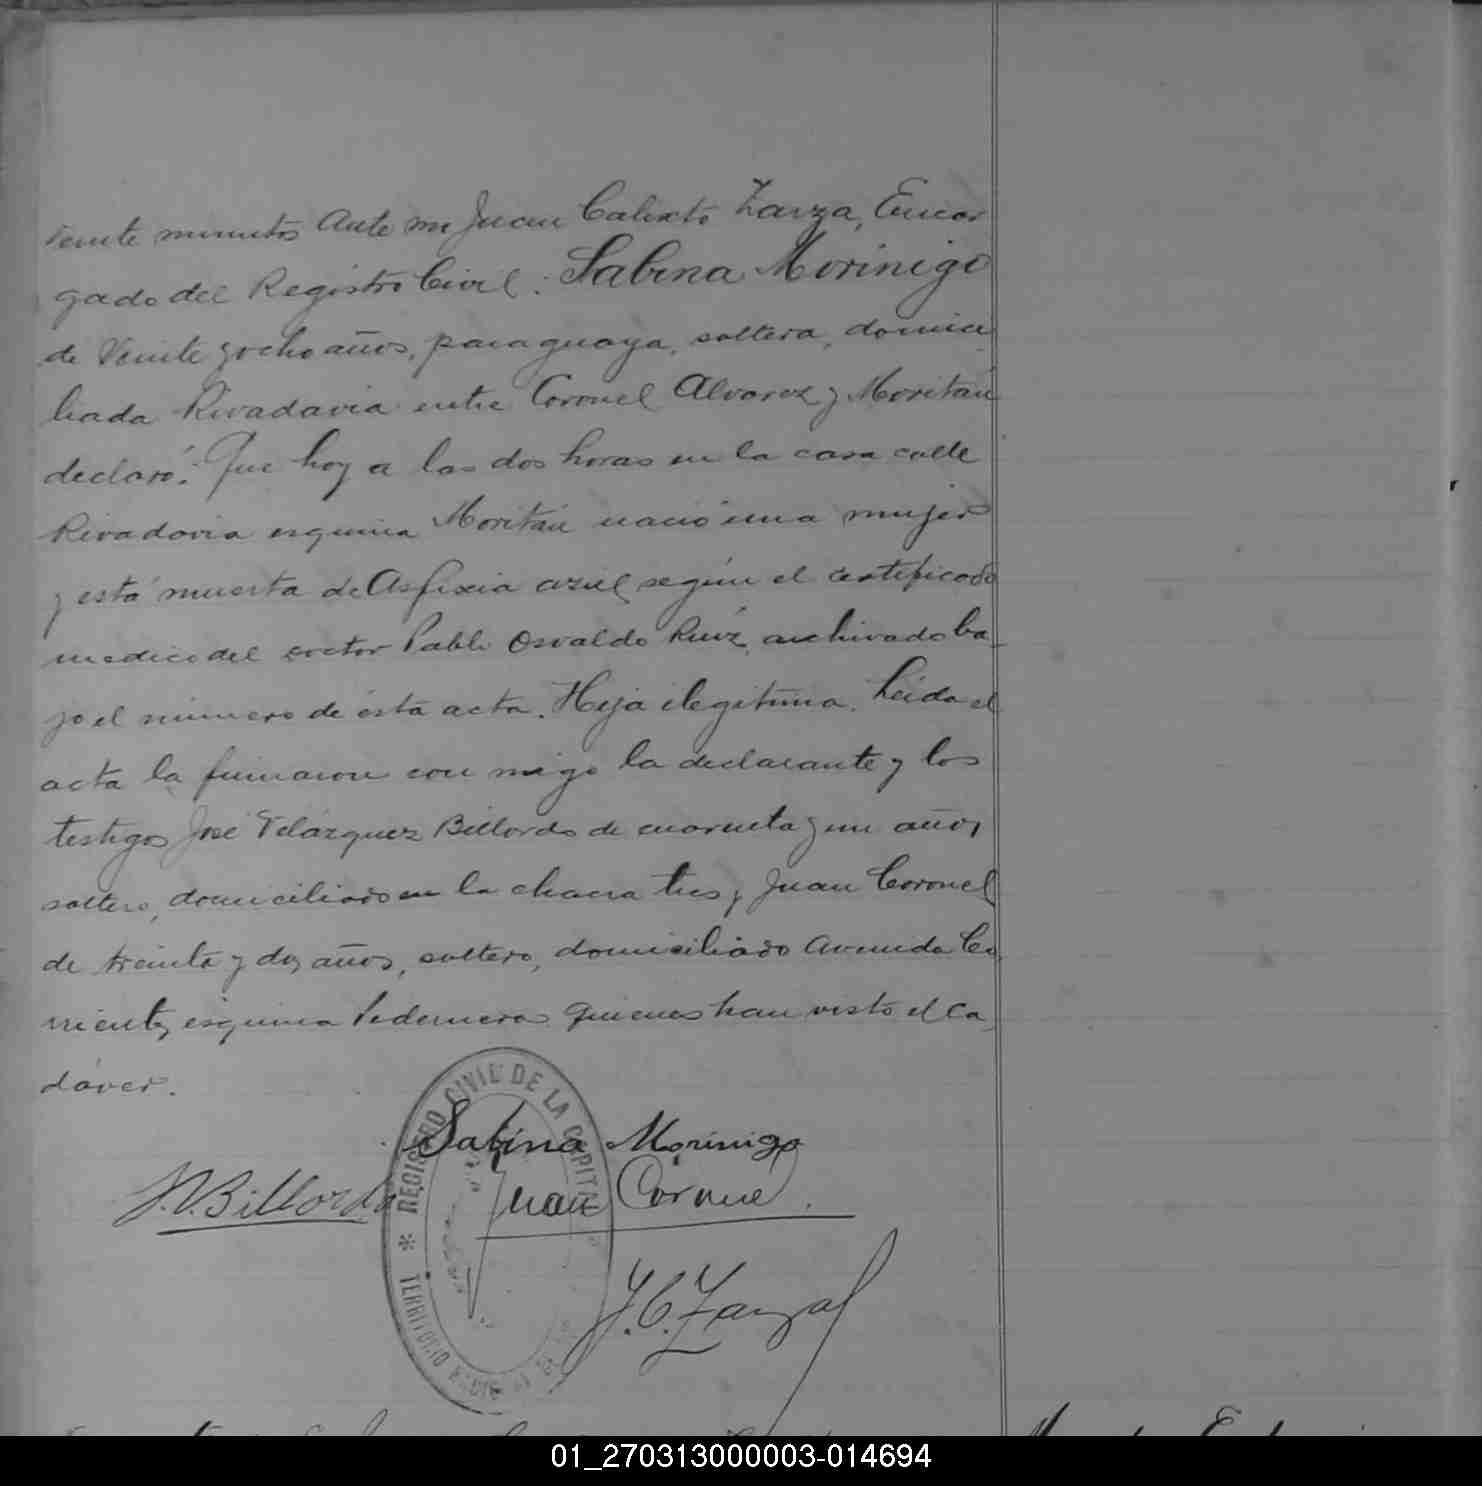 veinte minutos Ante mi Juan Calixto Zarza, Encar
gado del Registro Civil: Sabina Morinigo
de Veinte y ocho años, paraguaya, soltera, domici
liada Rivadavia entre Coronel Alvarez y Moritán
declaró: Que hoy a las dos horas en la casa calle
Rivadavia esquina Moritán nació una mujer
y está muerta de Asfixia azul según el certificado
medico del doctor Pablo Osvaldo Ruíz, archivado ba
jo el número de ésta acta. Hija ilegitima. Leida el
acta la firmaron con migo la declarante y los
testigos José Velázquez Billordo de cuarenta y un años,
soltero, domiciliado en la chacra tres y Juan Coronel
de treinta y dos años, soltero, domiciliado Avenida Co
rrientes esquina Pedernera quienes han visto el ca
dáver.
REGISTRO CIVIL DE LA CAPITAL
* TERRITORIO
Sabina Morinigo
J.V.Billordo
Juan Coronel
J.C.Zarza
01_270313000003-014694